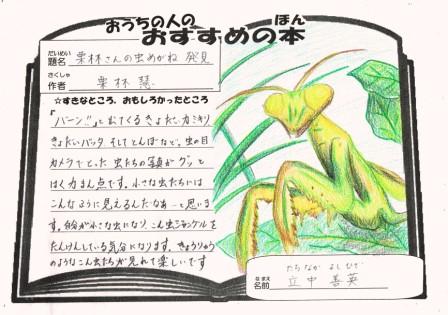 おうちの人の
おすすめの本
だいめい
題名 栗林さんの虫めがね 発見
さくしゃ
作者 栗林 慧
☆すきなところ、おもしろかったところ
「バーン!!」と出てくるきょだいカミキリ
きょだいバッタ そしてとんぼなど、虫の目
カメラでとった 虫たちの写真が グッと
はく力まん点です。小さな虫たちには
こんなように見えるんだなあーと思いま
す。自分が小さな虫になり、こん虫ジャングルを
たんけんしている気分になります。きょうりゅう
のようなこん虫たちが見れて楽しいです
たちなか よしひで
なまえ
名前 立中 善英